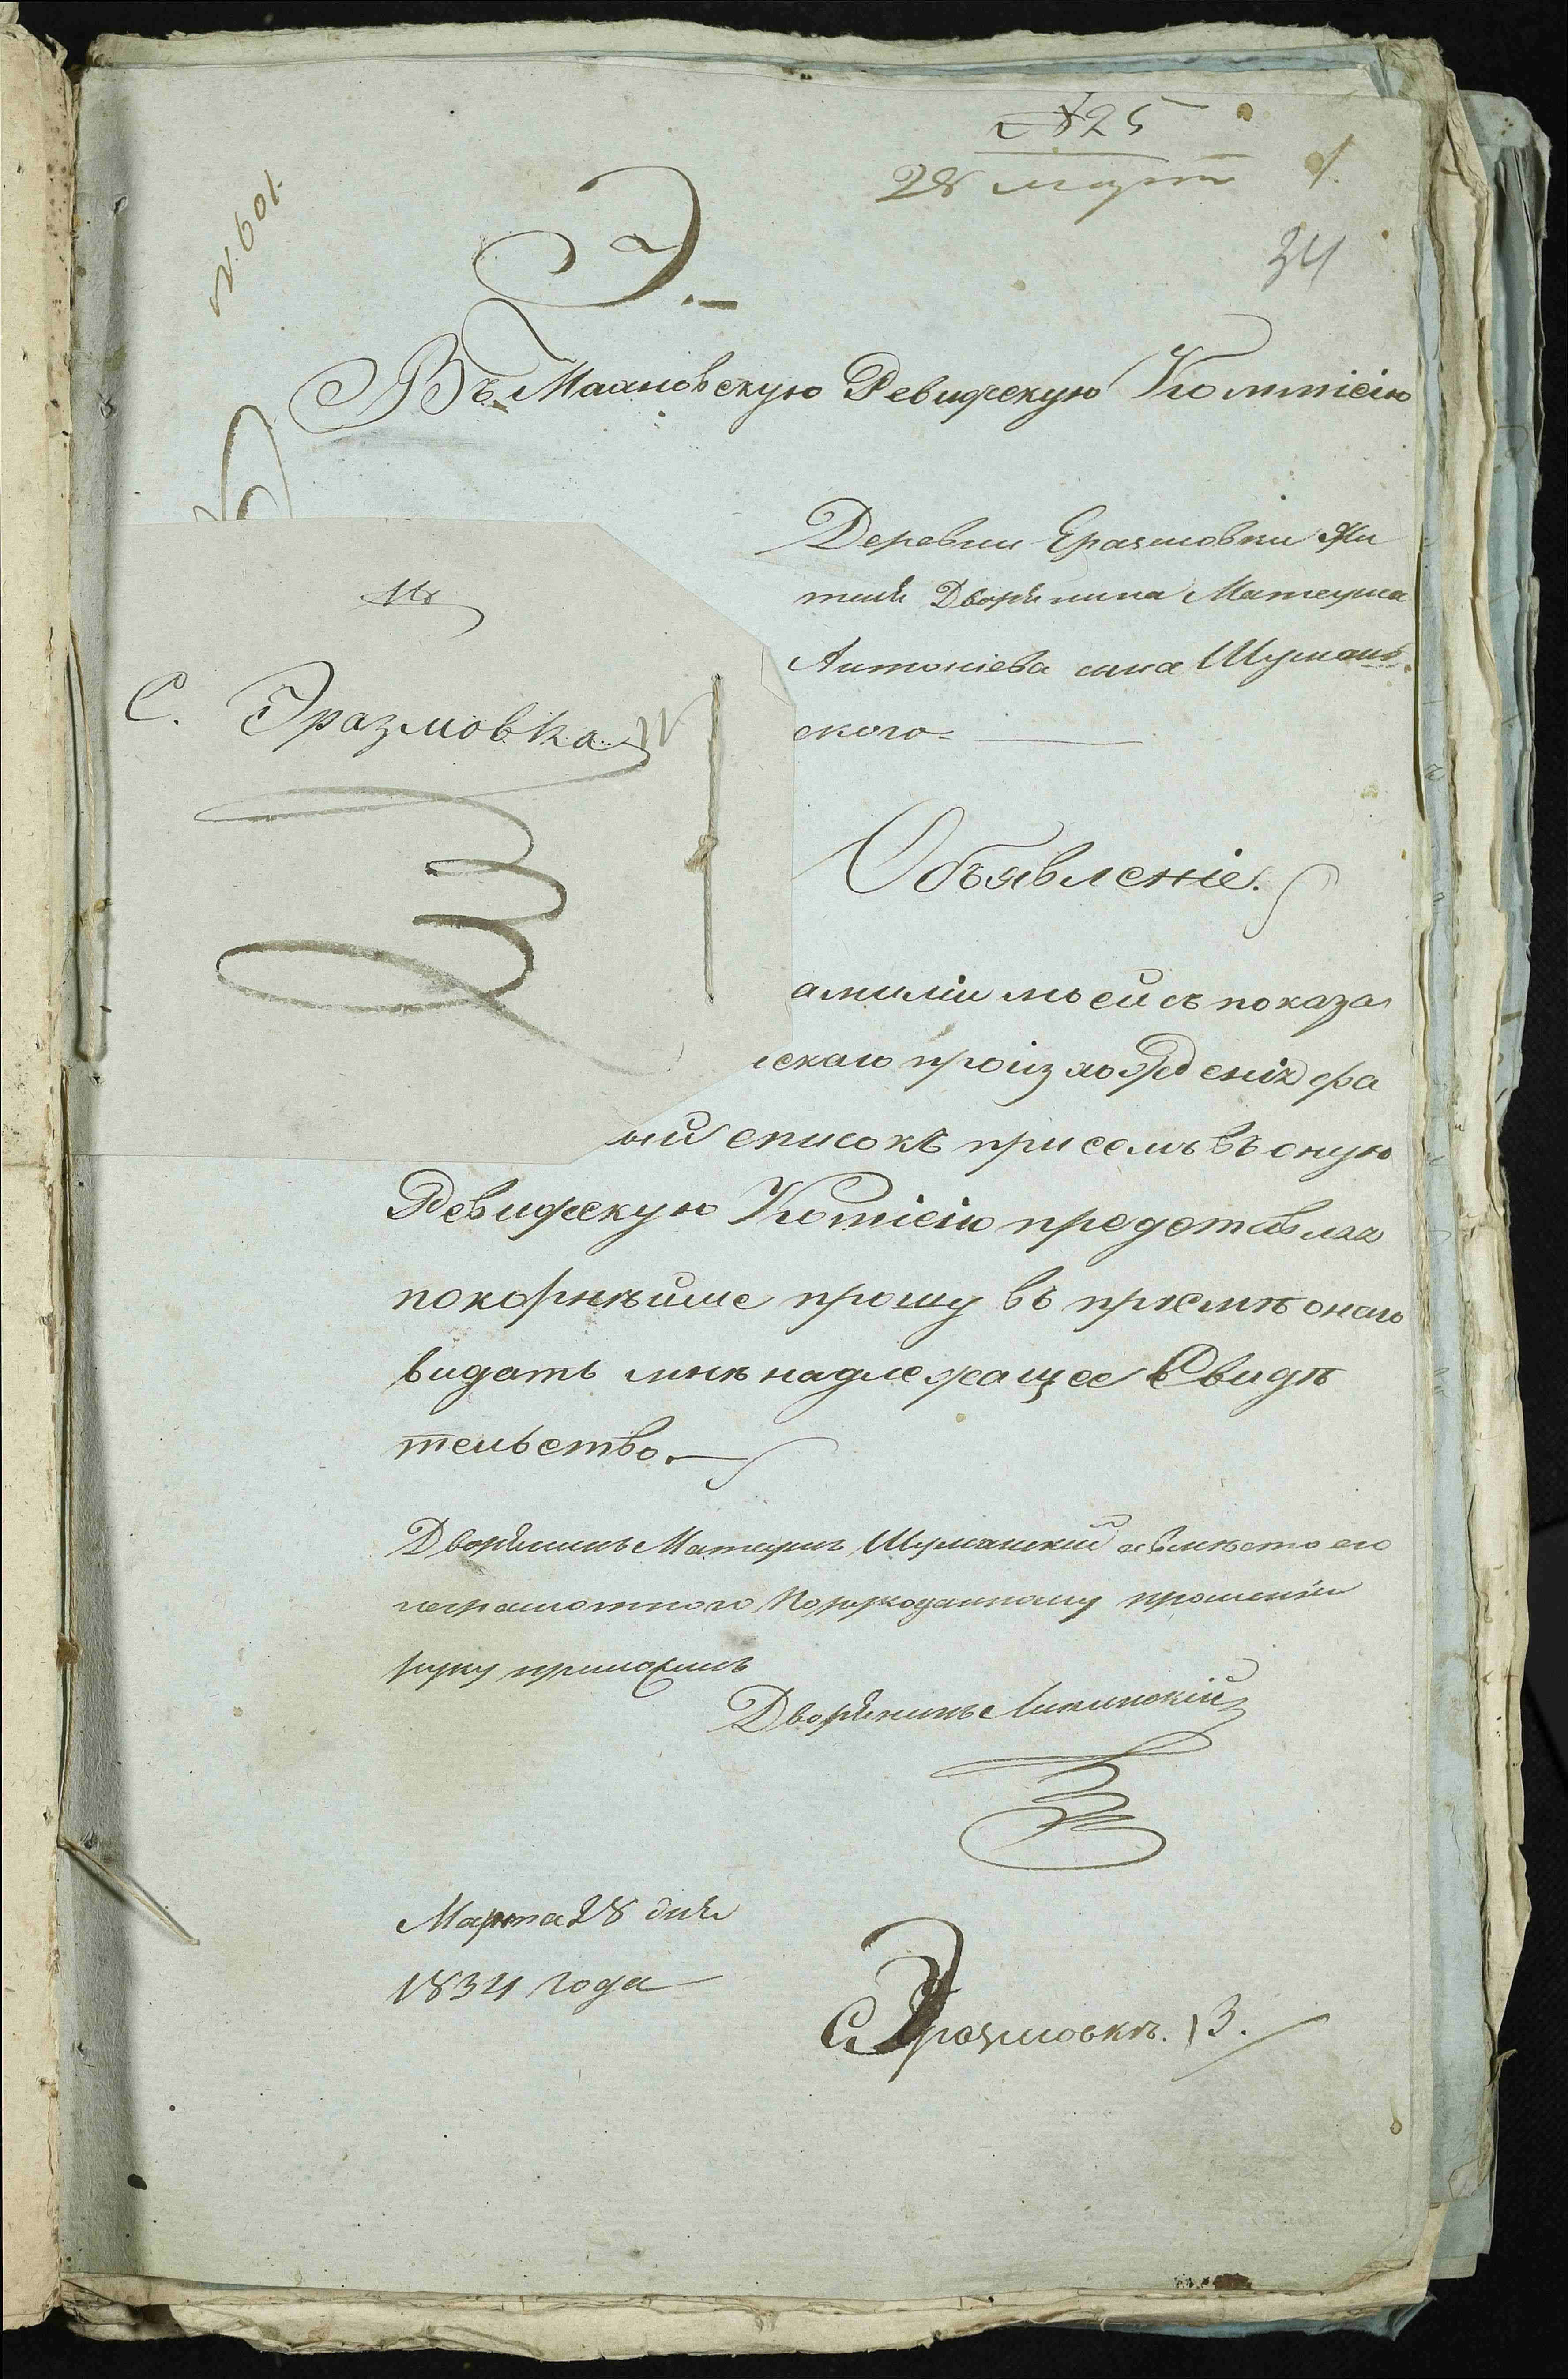 № 25
28 марта
34
N. 601.
Э.
Въ Махновскую Ревизскую Коммісію
Деревни Еразмовки Жи
теля Дворянина Матеуша
Антоніева сына Шуман
ского
С. Эразмовка
Объявленіе.
амиліи моей съ показа
скаго произхожденія фа
ый списокъ при семъ въ оную
Ревизскую Комісію представляя
покорнейше прошу въ пріемѣ онаго
видать мнѣ надлежащее Свидѣ
тельство.
Дворянинъ Матеушъ Шуманскій а вмѣсто его
неграмотного По рукоданному прошенію
руку приложилъ
Дворянинъ Липинскій
Марта 28 дня
1834 года
С. Эразмовкѣ. 13.